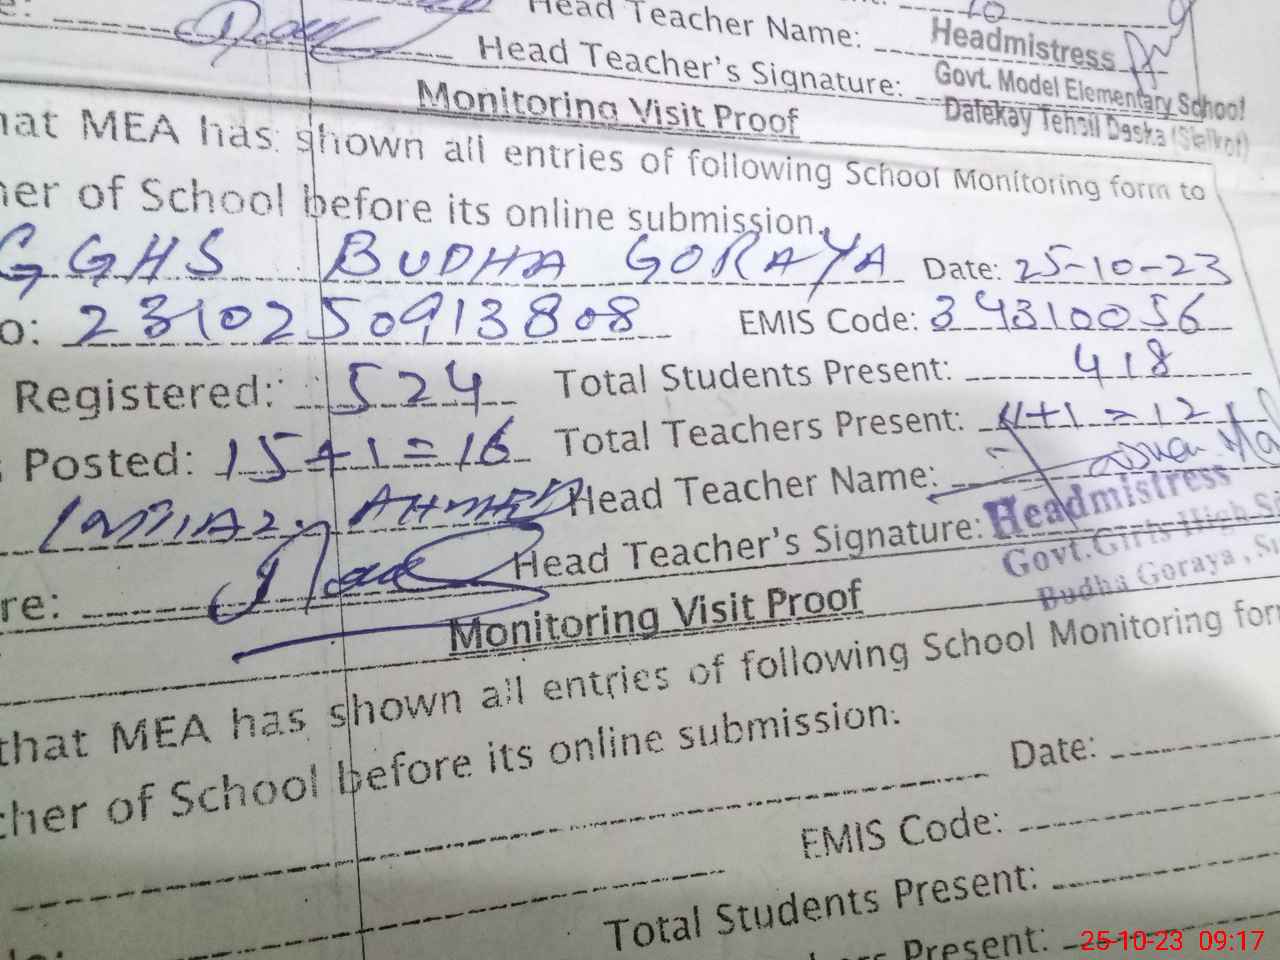 Head Teacher Name:
Headmistress
Head Teacher's Signature:
Govt. Model Elementary School
Dalekay Tehsil Daska (Sialkot)
Monitoring Visit Proof
hat MEA has shown all entries of following School Monitoring form to
her of School before its online submission.
GGHS BUDHA GORAYA Date: 25-10-23
o: 2310250913808 EMIS Code: 34310056
Registered: 524 Total Students Present: 418
Posted: 15+1=16 Total Teachers Present: 11+1=12
IMTIAZ AHMED Head Teacher Name:
re: Head Teacher's Signature:
Headmistress
Govt. Girls High
Budha Goraya,
Monitoring Visit Proof
that MEA has shown all entries of following School Monitoring for
cher of School before its online submission.
Date:
EMIS Code:
Total Students Present:
Present:
25-10-23 09:17